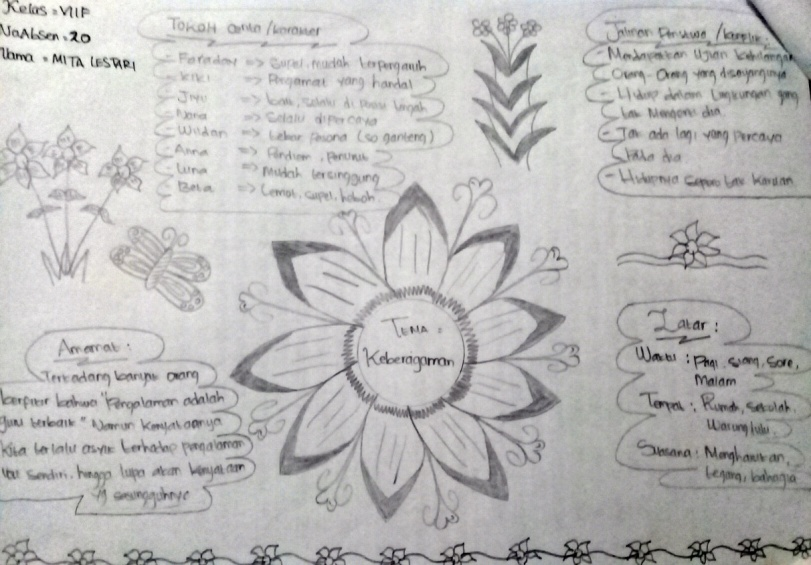 Kelas = VIIF
No Absen = 20
Nama = MITA LESTARI
TOKOH cerita / karakter
- Faraday => Supel, mudah terpengaruh
- Kiki => Pengamat yang handal
- Juju => baik, selalu di
- Nana => Selalu dipercaya
- Wildan => Lebar pesona (so ganteng)
- Anna => Pendiam, Penurut
- Luna => Mudah tersinggung
- Bela => Lemot, supel, heboh
Jalinan Peristiwa /
- Mendapatkan Ujian kehilangan
Orang-Orang yang disayanginya
- Hidup dalam Lingkungan yang
tak Mengerti dia
- Tak ada lagi yang Percaya
Pada dia
- Hidupnya seperti tak karuan
TEMA =
Keberagaman
Amanat :
Terkadang banyak orang
berfikir bahwa "Pengalaman adalah
guru terbaik" Namun kenyataanya
kita terlalu asyik berhadap pengalaman
itu sendiri, hingga lupa akan kenyataan
yg sesungguhnya
Latar :
Waktu : Pagi, siang, Sore,
Malam
Tempat : Rumah, sekolah,
Warung lulu
Suasana : Mengharukan,
tegang, bahagia